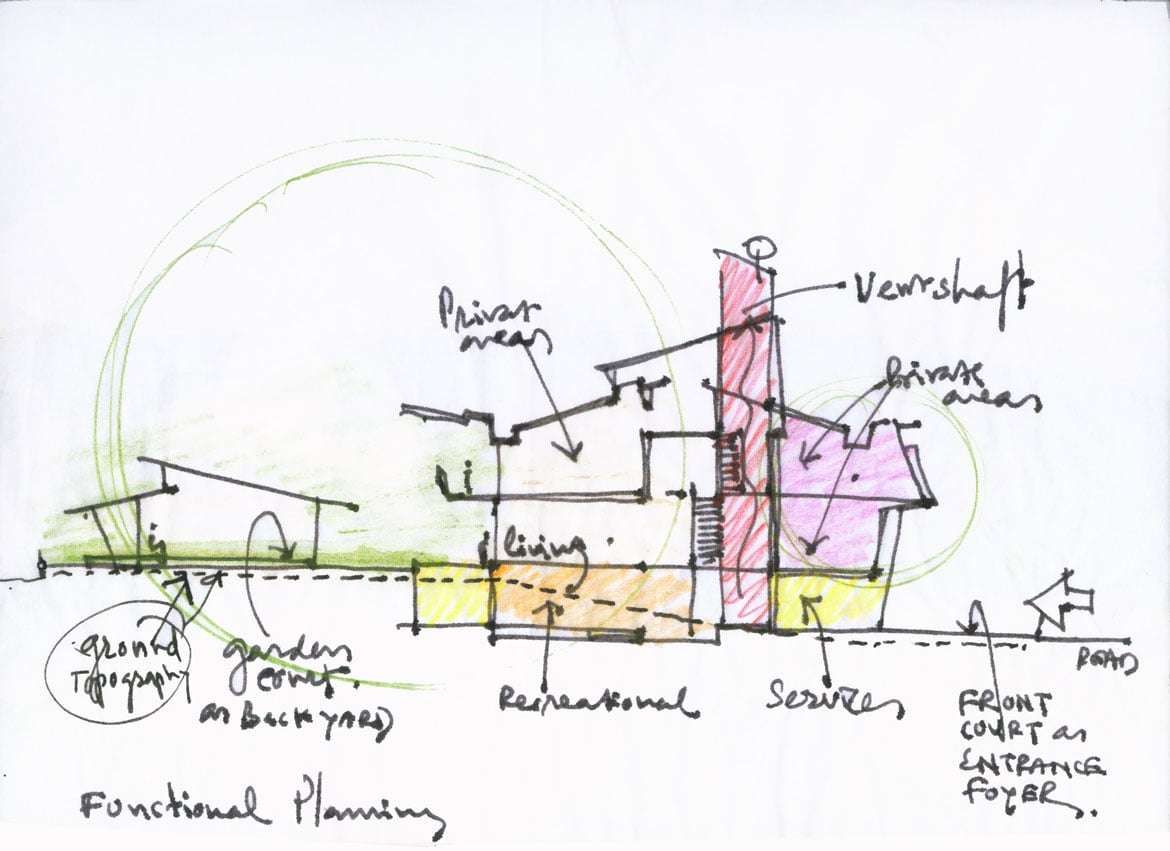 Ventshaft
Private
areas
Private
areas
living
ground
Topography
garden
court.
as BACKYARD
Recreational
Services
ROAD
FRONT
COURT as
ENTRANCE
FOYER.
Functional Planning